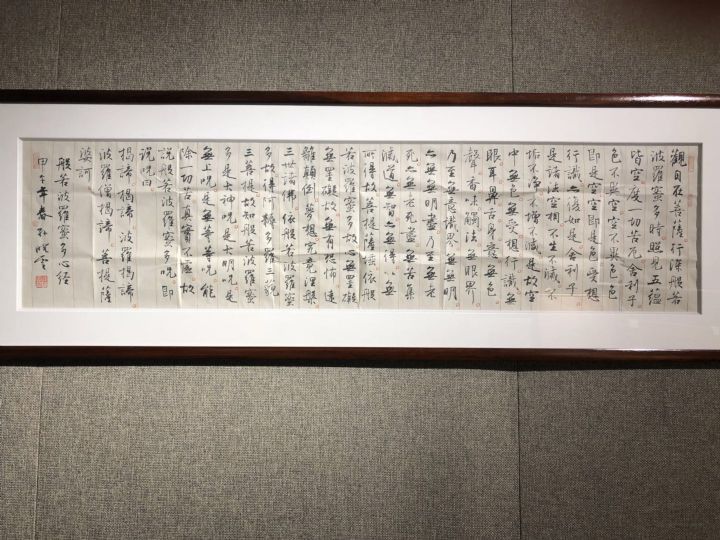 觀自在菩薩行深般若
波羅蜜多時照見五蘊
皆空度一切苦厄舍利子
色不異空空不異色色
即是空空即是色受想
行識亦復如是舍利子
是諸法空相不生不滅不
垢不淨不增不減是故空
中無色無受想行識無
眼耳鼻舌身意無色
聲香味觸法無眼界
乃至無意識界無無明
亦無無明盡乃至無老
死亦無老死盡無苦集
滅道無智亦無得以無
所得故菩提薩埵依般
若波羅蜜多故心無罣礙
無罣礙故無有恐怖遠
離顛倒夢想究竟涅槃
三世諸佛依般若波羅蜜
多故得阿耨多羅三藐
三菩提故知般若波羅蜜
多是大神呪是大明呪是
無上呪是無等等呪能
除一切苦真實不虛故
說般若波羅蜜多呪即
說呪曰
揭諦揭諦波羅揭諦
波羅僧揭諦菩提薩
婆訶
般若波羅蜜多心經
甲午年春孫曉雲